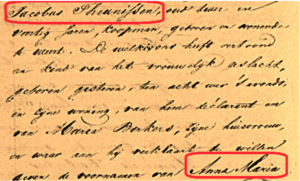 Jacobus Theunissen, oud twee en
veertig Jaren, koopman, geboren en wonende
te weert. De welke ons heeft vertoond
een kind van het vrouwelijk geslacht,
geboren gisteren, ten acht uur 's avonds,
in zijne woning, van hem déclarant en
van Maria Berkers, zijne huisvrouw,
en waar aan hij verklaart te willen
geven de voornamen van Anna Maria